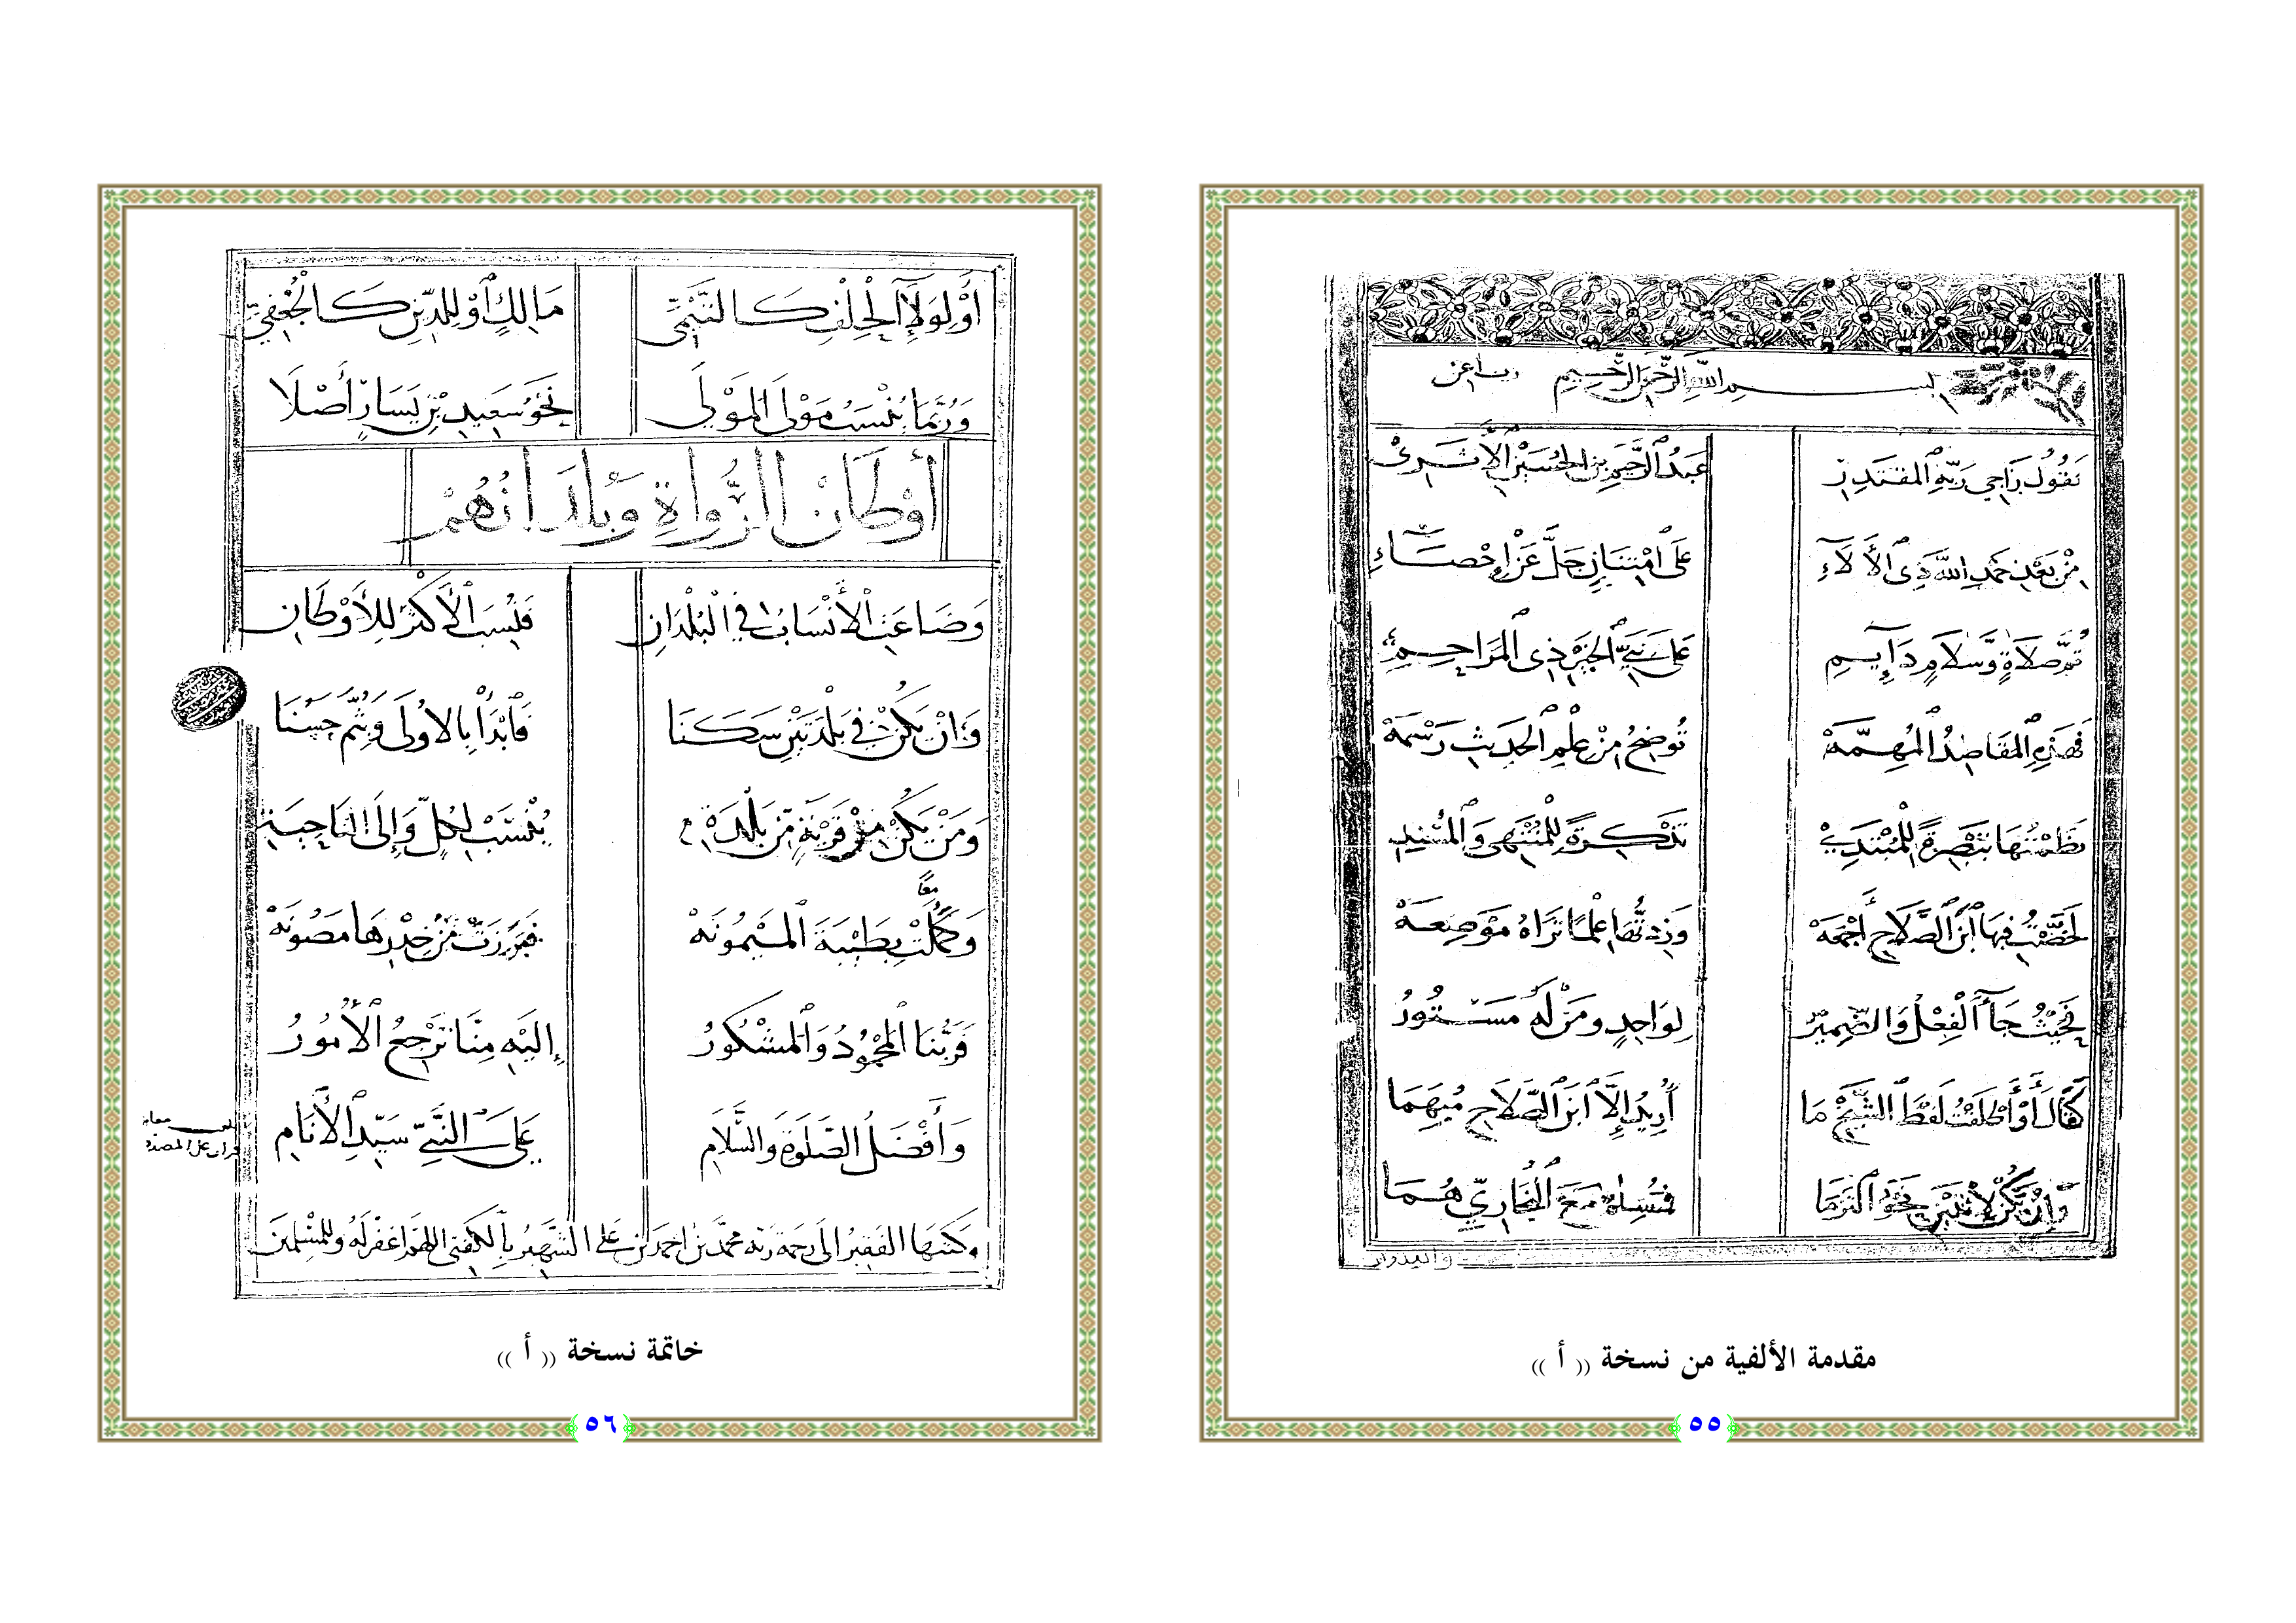 بسم الله الرحمن الرحيم رب أعن
يَقُولُ رَاجِي رَبِّهِ المُقْتَدِرِ عَبْدُ الرَّحِيمِ بنُ الحُسَيْنِ الأَثَرِيْ
مِنْ بَعْدِ حَمْدِ اللهِ ذِي الآلَاءِ عَلَى امْتِنَانٍ جَلَّ عَنْ إِحْصَاءِ
ثُمَّ صَلَاةٍ وَسَلَامٍ دَائِمِ عَلَى نَبِيِّ الخَيْرِ ذِي المَرَاحِمِ
فَهَذِهِ المَقَاصِدُ المُهِمَّهْ تُوضِحُ مِنْ عِلْمِ الحَدِيثِ رَسْمَهْ
نَظَمْتُهَا تَبْصِرَةً لِلْمُبْتَدِيْ تَذْكِرَةً لِلْمُنْتَهِي وَالمُسْنِدِ
لَخَّصْتُ فِيهَا ابْنَ الصَّلَاحِ أَجْمَعَهْ وَزِدْتُهَا عِلْمًا تَرَاهُ مَوْضِعَهْ
فَحَيْثُ جَاءَ الفِعْلُ وَالضَّمِيرُ لِوَاحِدٍ وَمَنْ لَهُ مَسْتُورُ
كَقَالَ أَوْ أَطْلَقْتُ لَفْظَ الشَّيْخِ مَا أُرِيدُ إِلَّا ابْنَ الصَّلَاحِ مُبْهَمَا
وَإِنْ يَكُنْ لِاثْنَيْنِ نَحْوُ التَزَمَا فَمُسْلِمٌ مَعَ البُخَارِيِّ هُمَا
مقدمة الألفية من نسخة (( أ ))
٥٥
أَوْ لِوَلَاءِ الحِلْفِ كَالتَّيْمِيِّ مَالِكٍ أَوْ لِلدِّينِ كَالجُعْفِيِّ
وَرُبَّمَا يُنْسَبُ مَوْلَى المَوْلَى نَحْوُ سَعِيدِ بْنِ يَسَارٍ أَصْلَا
أَوْطَانُ الرُّوَاةِ وَبُلْدَانُهُمْ
وَضَاعَتِ الأَنْسَابُ فِي البُلْدَانِ فَنُسِبَ الأَكْثَرُ لِلأَوْطَانِ
وَإِنْ يَكُنْ فِي بَلْدَتَيْنِ سَكَنَا فَابْدَأْ بِالأُولَى وَبِثُمَّ حَسُنَا
وَمَنْ يَكُنْ مِنْ قَرْيَةٍ مِنْ بَلْدَةِ يُنْسَبْ لِكُلٍّ وَإِلَى النَّاحِيَةِ
معا
وَكَمُلَتْ بِطَيْبَةَ المَيْمُونَهْ فَبَرَزَتْ مِنْ خِدْرِهَا مَصُونَهْ
فَرَبُّنَا المَحْمُودُ وَالمَشْكُورُ إِلَيْهِ مِنَّا تَرْجِعُ الأُمُورُ
وَأَفْضَلُ الصَّلَوةِ وَالسَّلَامِ عَلَى النَّبِيِّ سَيِّدِ الأَنَامِ
وكتبها الفقير إلى رحمة ربه محمد بن أحمد بن علي الشهير بالكفتي اللهم اغفر له وللمسلمين
خاتمة نسخة (( أ ))
٥٦